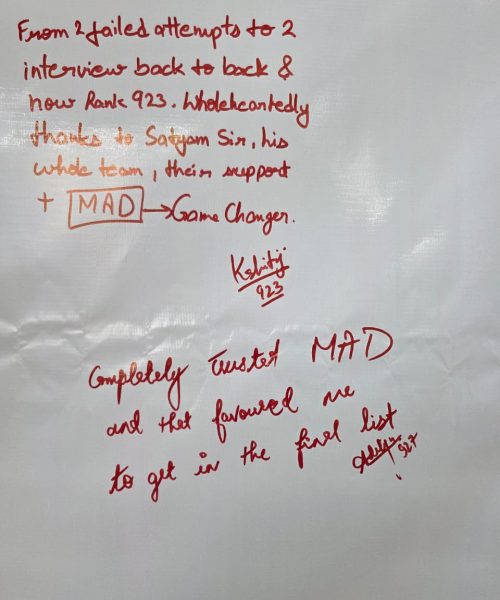 From 2 failed attempts to 2
interview back to back &
now Rank 923. Wholeheartedly
thanks to Satyam Sir, his
whole team, their support
+ MAD → Game Changer.
Kshitij
923
Completely trusted MAD
and that favoured me
to get in the final list
927